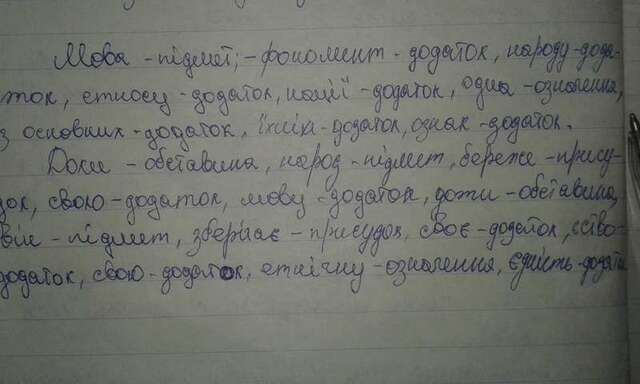 Мова - підмет, - фономент - додаток, народу - дода-
ток, етносу - додаток, нації - додаток, одна - означення,
з основних - додаток, їхніх - додаток, ознак - додаток.
Доки - обставина, народ - підмет, береже - прису-
док, свою - додаток, мову - додаток, доти - обставина,
він - підмет, зберігає - присудок, своє - додаток, єство -
додаток, свою - додаток, етнічну - означення, єдність - дода